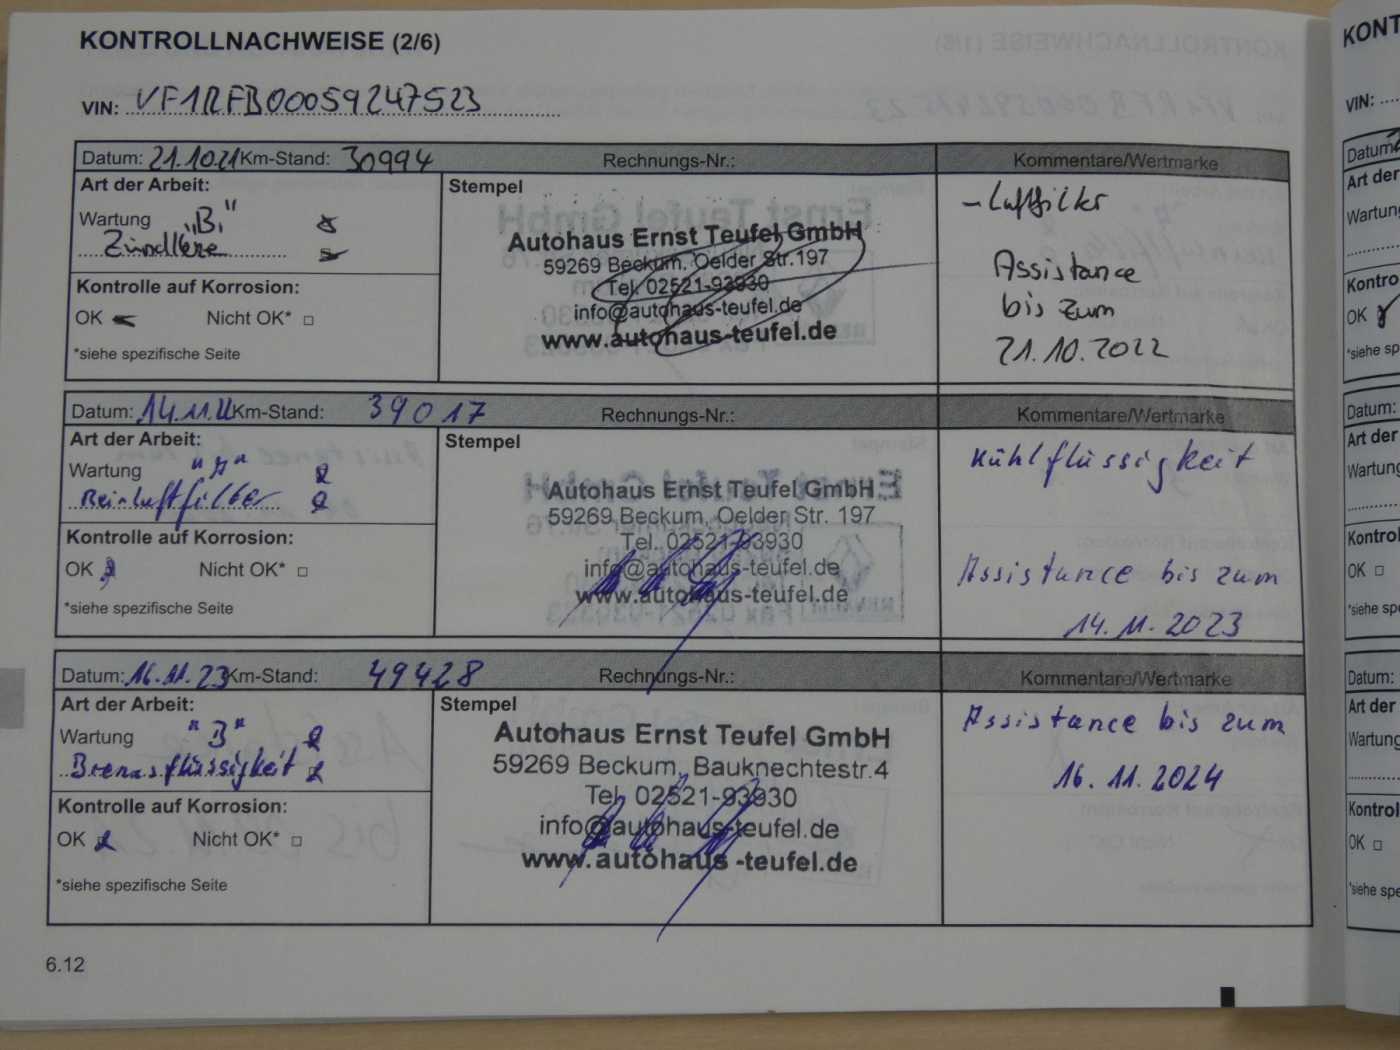 KONTROLLNACHWEISE (2/6)
VIN: VF1RFB00059247523
Datum: 21.10.21 Km-Stand: 30994 Rechnungs-Nr.: Kommentare/Wertmarke
Art der Arbeit:
Wartung "B"
Stempel
Autohaus Ernst Teufel GmbH
59269 Beckum, Oelder Str.197
Tel. 02521-93930
info@autohaus-teufel.de
www.autohaus-teufel.de
- Luftfilter
Assistance
bis zum
21.10.2022
Kontrolle auf Korrosion:
OK Nicht OK* □
*siehe spezifische Seite
Datum: 14.11.22 Km-Stand: 39017 Rechnungs-Nr.: Kommentare/Wertmarke
Art der Arbeit:
Wartung "A"
Reinluftfilter
Stempel
Autohaus Ernst Teufel GmbH
59269 Beckum, Oelder Str. 197
Tel. 02521-93930
info@autohaus-teufel.de
www.autohaus-teufel.de
Kühlflüssigkeit
Assistance bis zum
14.11.2023
Kontrolle auf Korrosion:
OK Nicht OK* □
*siehe spezifische Seite
Datum: 16.11.23 Km-Stand: 49428 Rechnungs-Nr.: Kommentare/Wertmarke
Art der Arbeit:
Wartung "B"
Bremsflüssigkeit
Stempel
Autohaus Ernst Teufel GmbH
59269 Beckum, Bauknechtestr.4
Tel. 02521-93930
info@autohaus-teufel.de
www.autohaus -teufel.de
Assistance bis zum
16.11.2024
Kontrolle auf Korrosion:
OK Nicht OK* □
*siehe spezifische Seite
6.12
KONT
VIN:
Datum
Art der
Wartung
Kontro
OK
*siehe sp
Datum:
Art der
Wartung
Kontrol
OK □
*siehe spe
Datum:
Art der
Wartung
Kontrol
OK □
*siehe spe